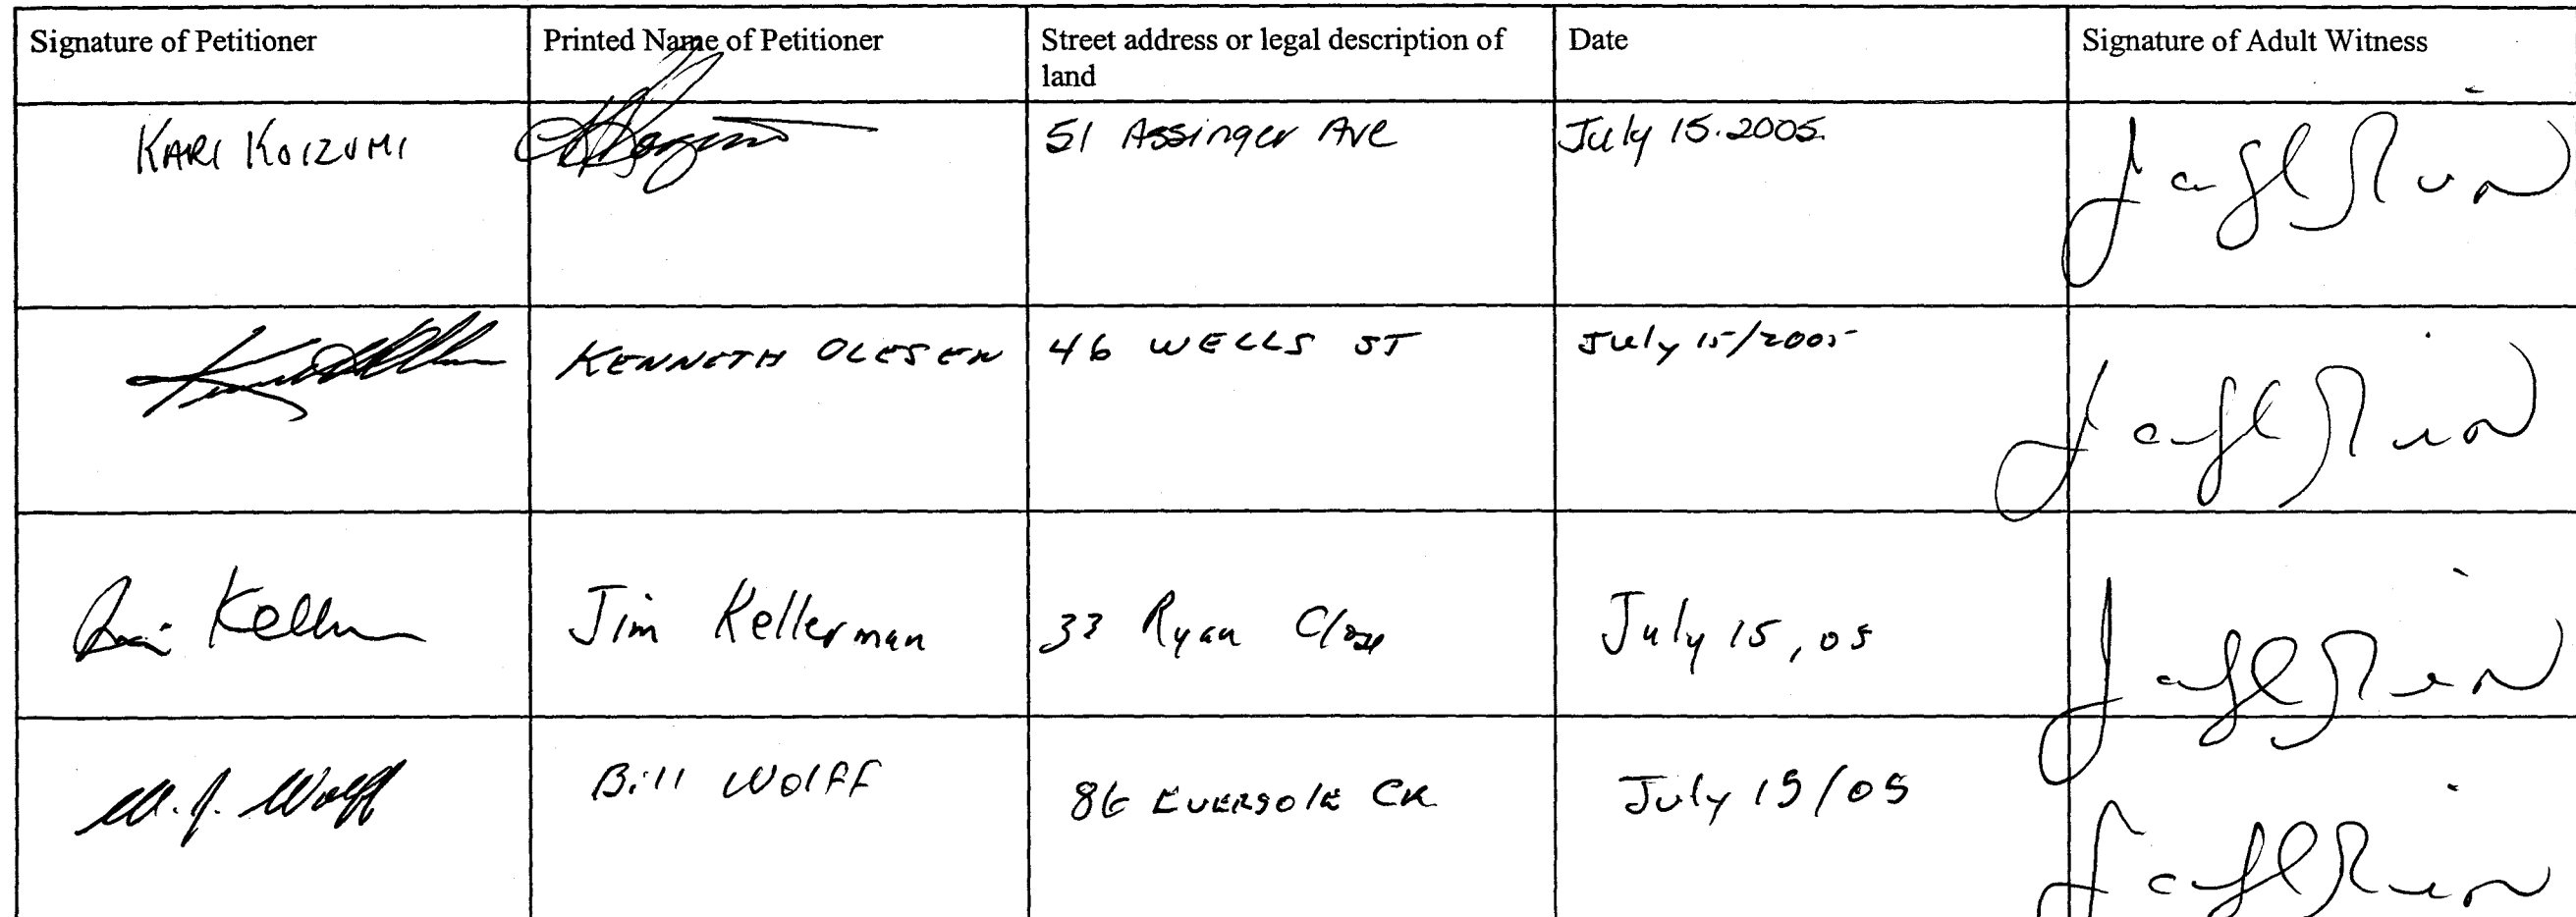 Signature of Petitioner Printed Name of Petitioner Street address or legal description of land Date Signature of Adult Witness
KARI KOIZUMI 51 Assinger Ave July 15.2005.
KENNETH OLESEN 46 WELLS ST July 15/2005
Jim Kellerman 33 Ryan Close July 15, 05
W. J. Wolff Bill Wolff 86 EVERSOLE CR July 15/05